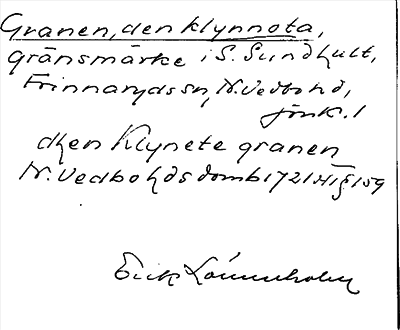 Granen, den klynnota,
gränsmärke i S. Sundhult,
Frinnaryds sn, N. Vedbo hd,
Jönk. l
dhen Klynete granen
N. Vedbo hds domb 1721 HT § 159
Erik Lönnholm